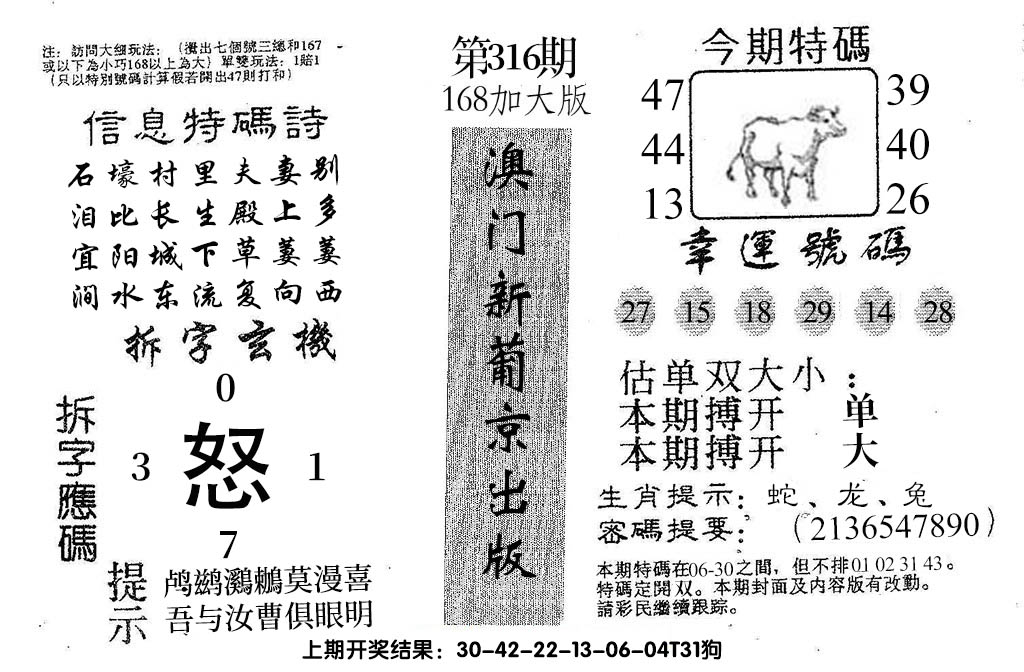 注：訪問大細玩法：（攪出七個號三總和167
或以下為小巧168以上為大）單雙玩法：1賠1
（只以特別號碼計算假若開出47則打和）
信息特碼詩
石壕村里夫妻别
泪比长生殿上多
宜阳城下草萋萋
涧水东流复向西
拆字玄機
拆字應碼
0
3 怒 1
7
提示
鸬鹚㶉鶒莫漫喜
吾与汝曹俱眼明
第316期
168加大版
澳门新葡京出版
今期特碼
47 39
44 40
13 26
幸運號碼
27 15 18 29 14 28
估单双大小：
本期搏开 单
本期搏开 大
生肖提示：蛇、龙、兔
密碼提要：（2136547890）
本期特碼在06-30之間，但不排01 02 31 43。
特碼定開双。本期封面及内容版有改動。
請彩民繼續跟踪。
上期开奖结果：30-42-22-13-06-04T31狗